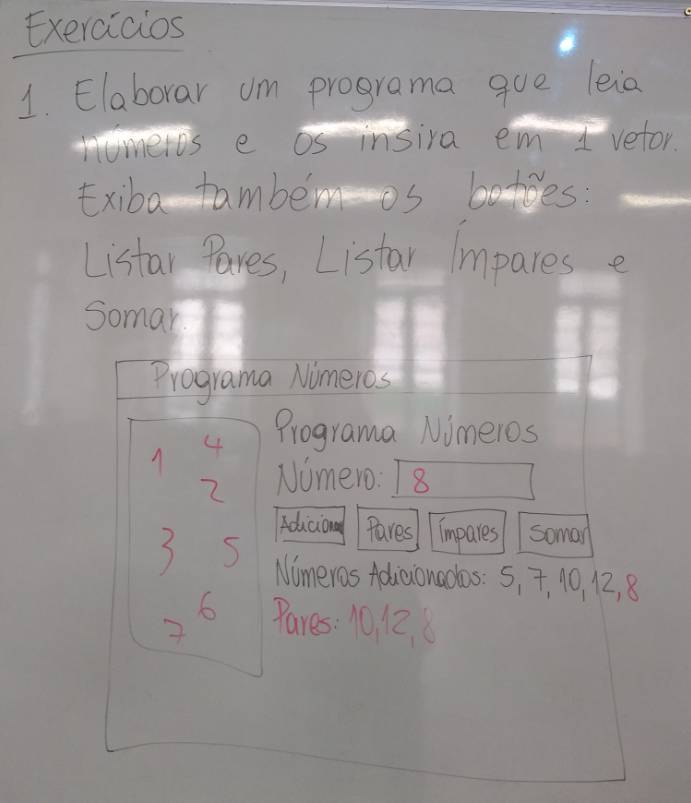 Exercícios
1. Elaborar um programa que leia
números e os insira em 1 vetor.
Exiba também os botões:
Listar Pares, Listar Ímpares e
Somar.
Programa Números
1 4
2
3 5
6
7
Programa Números
Número: 8
Adicionar Pares Ímpares Somar
Números Adicionados: 5, 7, 10, 12, 8
Pares: 10, 12, 8